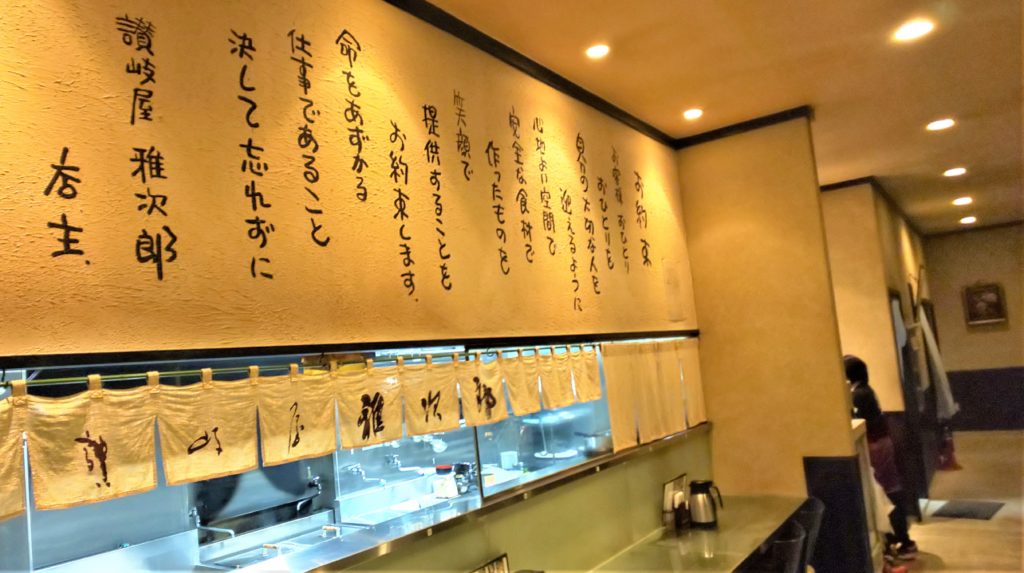 お約束
お客様おひとり
おひとりを
自分の大切な人を
迎えるように
心地よい空間で
安全な食材で
作ったものを
笑顔で
提供することを
お約束します。
命をあずかる
仕事であること
決して忘れずに
讃岐屋 雅次郎
店主.
讃岐屋雅次郎